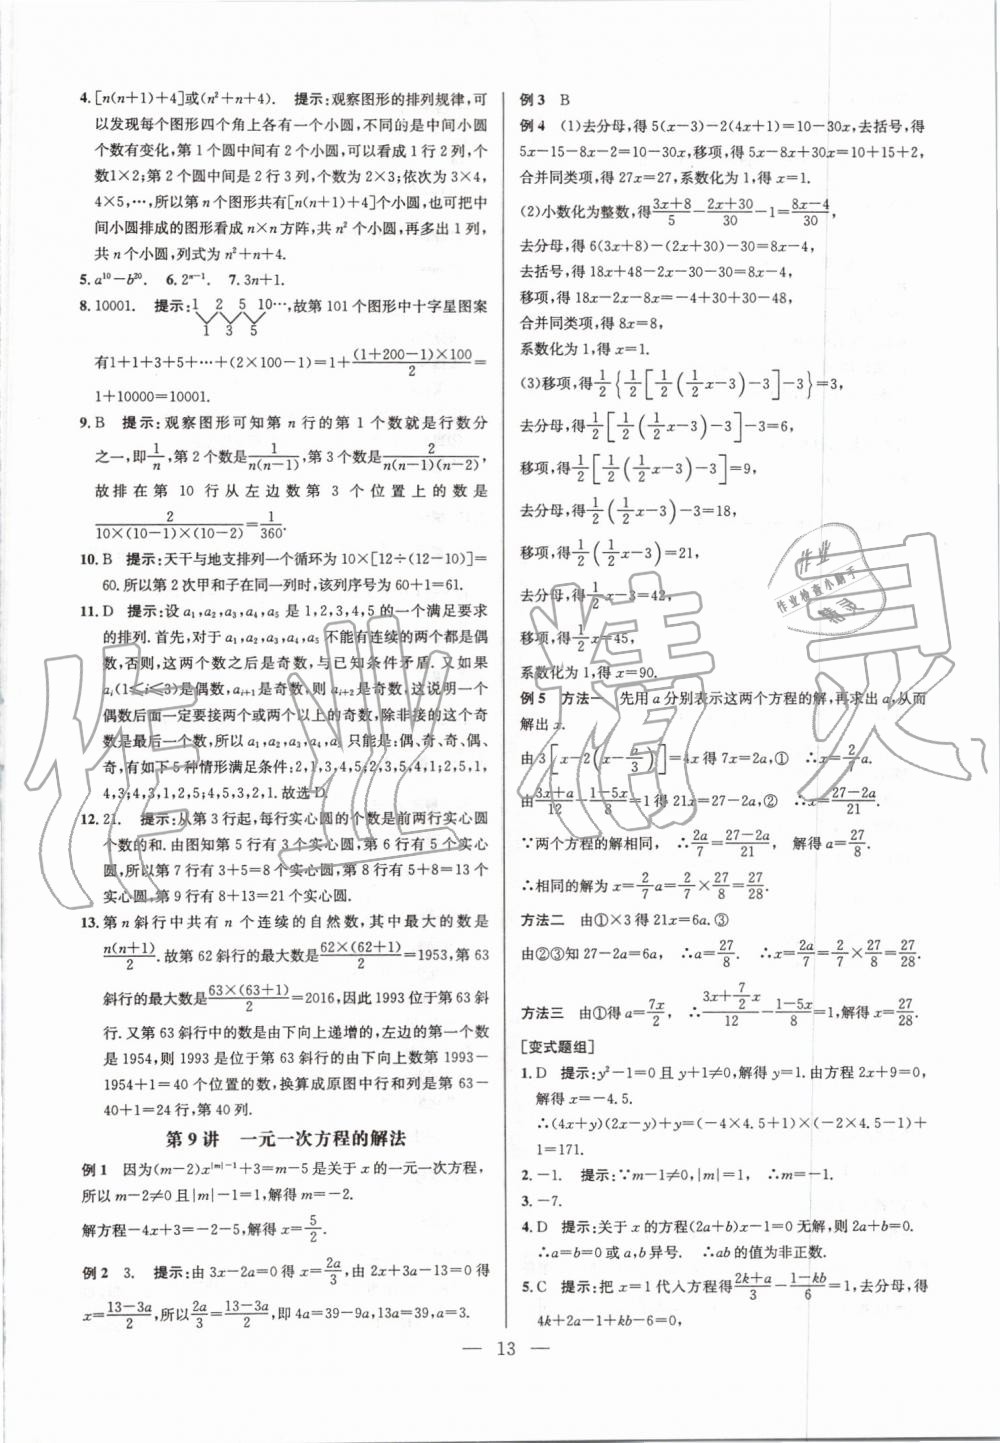 4.[n(n+1)+4]或(n²+n+4). 提示:观察图形的排列规律,可
以发现每个图形四个角上各有一个小圆,不同的是中间小圆
个数有变化,第1个圆中间有2个小圆,可以看成1行2列,个
数1×2;第2个圆中间是2行3列,个数2×3;依次为3×4,
4×5,…,所以第n个图形共有[n(n+1)+4]个小圆,也可把中
间小圆排成的图形看成n×n方阵,共n²个小圆,再多出1列,
共n个小圆,列式为n²+n+4.
5.a¹⁰-b²⁰. 6.2ⁿ⁻¹. 7.3n+1.
8.10001. 提示:1 2 5 10…,故第101个图形中十字星图案
1 3 5
有1+1+3+5+…+(2×100-1)=1+(1+200-1)×100/2=
1+10000=10001.
9.B 提示:观察图形可知第n行的第1个数就是行数分
之一,即1/n,第2个数是1/n(n-1),第3个数是2/n(n-1)(n-2),
故排在第10行从左边数第3个位置上的数是
2/10×(10-1)×(10-2)=1/360.
10.B 提示:天干与地支排列一个循环为10×[12÷(12-10)]=
60.所以第2次甲和子在同一列时,该列序号为60+1=61.
11.D 提示:设a₁,a₂,a₃,a₄,a₅是1,2,3,4,5的一个满足要求
的排列.首先,对于a₁,a₂,a₃,a₄,a₅不能有连续的两个都是偶
数,否则,这两个数之后是奇数,与已知条件矛盾.又如果
aᵢ(1≤i≤3)是偶数,aᵢ₊₁是奇数,则aᵢ₊₂是奇数,这说明一个
偶数后面一定要接两个或两个以上的奇数,除非接的这个奇
数是最后一个数,所以a₁,a₂,a₃,a₄,a₅只能是:偶、奇、奇、偶、
奇,有如下5种情形满足条件:2,1,3,4,5;2,3,5,4,1;2,5,1,
4,3;4,3,1,2,5;4,5,3,2,1.故选D.
12.21. 提示:从第3行起,每行实心圆的个数是前两行实心圆
个数的和.由图知第5行有3个实心圆,第6行有5个实心
圆,所以第7行有3+5=8个实心圆,第8行有5+8=13个
实心圆,第9行有8+13=21个实心圆.
13.第n斜行中共有n个连续的自然数,其中最大的数是
n(n+1)/2.故第62斜行的最大数是62×(62+1)/2=1953,第63
斜行的最大数是63×(63+1)/2=2016,因此1993位于第63斜
行.又第63斜行中的数是由下向上递增的,左边的第一个数
是1954,则1993是位于第63斜行的由下向上数第1993-
1954+1=40个位置的数,换算成原图中行和列是第63-
40+1=24行,第40列.
第9讲 一元一次方程的解法
例1 因为(m-2)x^|m|-1+3=m-5是关于x的一元一次方程,
所以m-2≠0且|m|-1=1,解得m=-2.
解方程-4x+3=-2-5,解得x=5/2.
例2 3. 提示:由3x-2a=0得x=2a/3,由2x+3a-13=0得
x=13-3a/2,所以2a/3=13-3a/2,即4a=39-9a,13a=39,a=3.
例3 B
例4 (1)去分母,得5(x-3)-2(4x+1)=10-30x,去括号,得
5x-15-8x-2=10-30x,移项,得5x-8x+30x=10+15+2,
合并同类项,得27x=27,系数化为1,得x=1.
(2)小数化为整数,得3x+8/5-2x+30/30-1=8x-4/30,
去分母,得6(3x+8)-(2x+30)-30=8x-4,
去括号,得18x+48-2x-30-30=8x-4,
移项,得18x-2x-8x=-4+30+30-48,
合并同类项,得8x=8,
系数化为1,得x=1.
(3)移项,得1/2{1/2[1/2(1/2x-3)-3]-3}=3,
去分母,得1/2[1/2(1/2x-3)-3]-3=6,
移项,得1/2[1/2(1/2x-3)-3]=9,
去分母,得1/2(1/2x-3)-3=18,
移项,得1/2(1/2x-3)=21,
去分母,得1/2x-3=42,
移项,得1/2x=45,
系数化为1,得x=90.
例5 方法一 先用a分别表示这两个方程的解,再求出a,从而
解出x.
由3[x-2(x-a/3)]=4x得7x=2a,① ∴x=2/7a.
由3x+a/12-1-5x/8=1得21x=27-2a,② ∴x=27-2a/21.
∵两个方程的解相同, ∴2a/7=27-2a/21, 解得a=27/8.
∴相同的解为x=2/7a=2/7×27/8=27/28.
方法二 由①×3得21x=6a.③
由②③知27-2a=6a, ∴a=27/8. ∴x=2a/7=2/7×27/8=27/28.
方法三 由①得a=7x/2, ∴3x+7/2x/12-1-5x/8=1,解得x=27/28.
[变式题组]
1.D 提示:y²-1=0且y+1≠0,解得y=1.由方程2x+9=0,
解得x=-4.5.
∴(4x+y)(2x-y)+y=(-4×4.5+1)×(-2×4.5-1)+
1=171.
2.-1. 提示:∵m-1≠0,|m|=1, ∴m=-1.
3.-7.
4.D 提示:关于x的方程(2a+b)x-1=0无解,则2a+b=0.
∴a=b=0或a,b异号. ∴ab的值为非正数.
5.C 提示:把x=1代入方程得2k+a/3-1-kb/6=1,去分母,得
4k+2a-1+kb-6=0,
— 13 —
作业精灵
作业
作业检查小助手
精灵